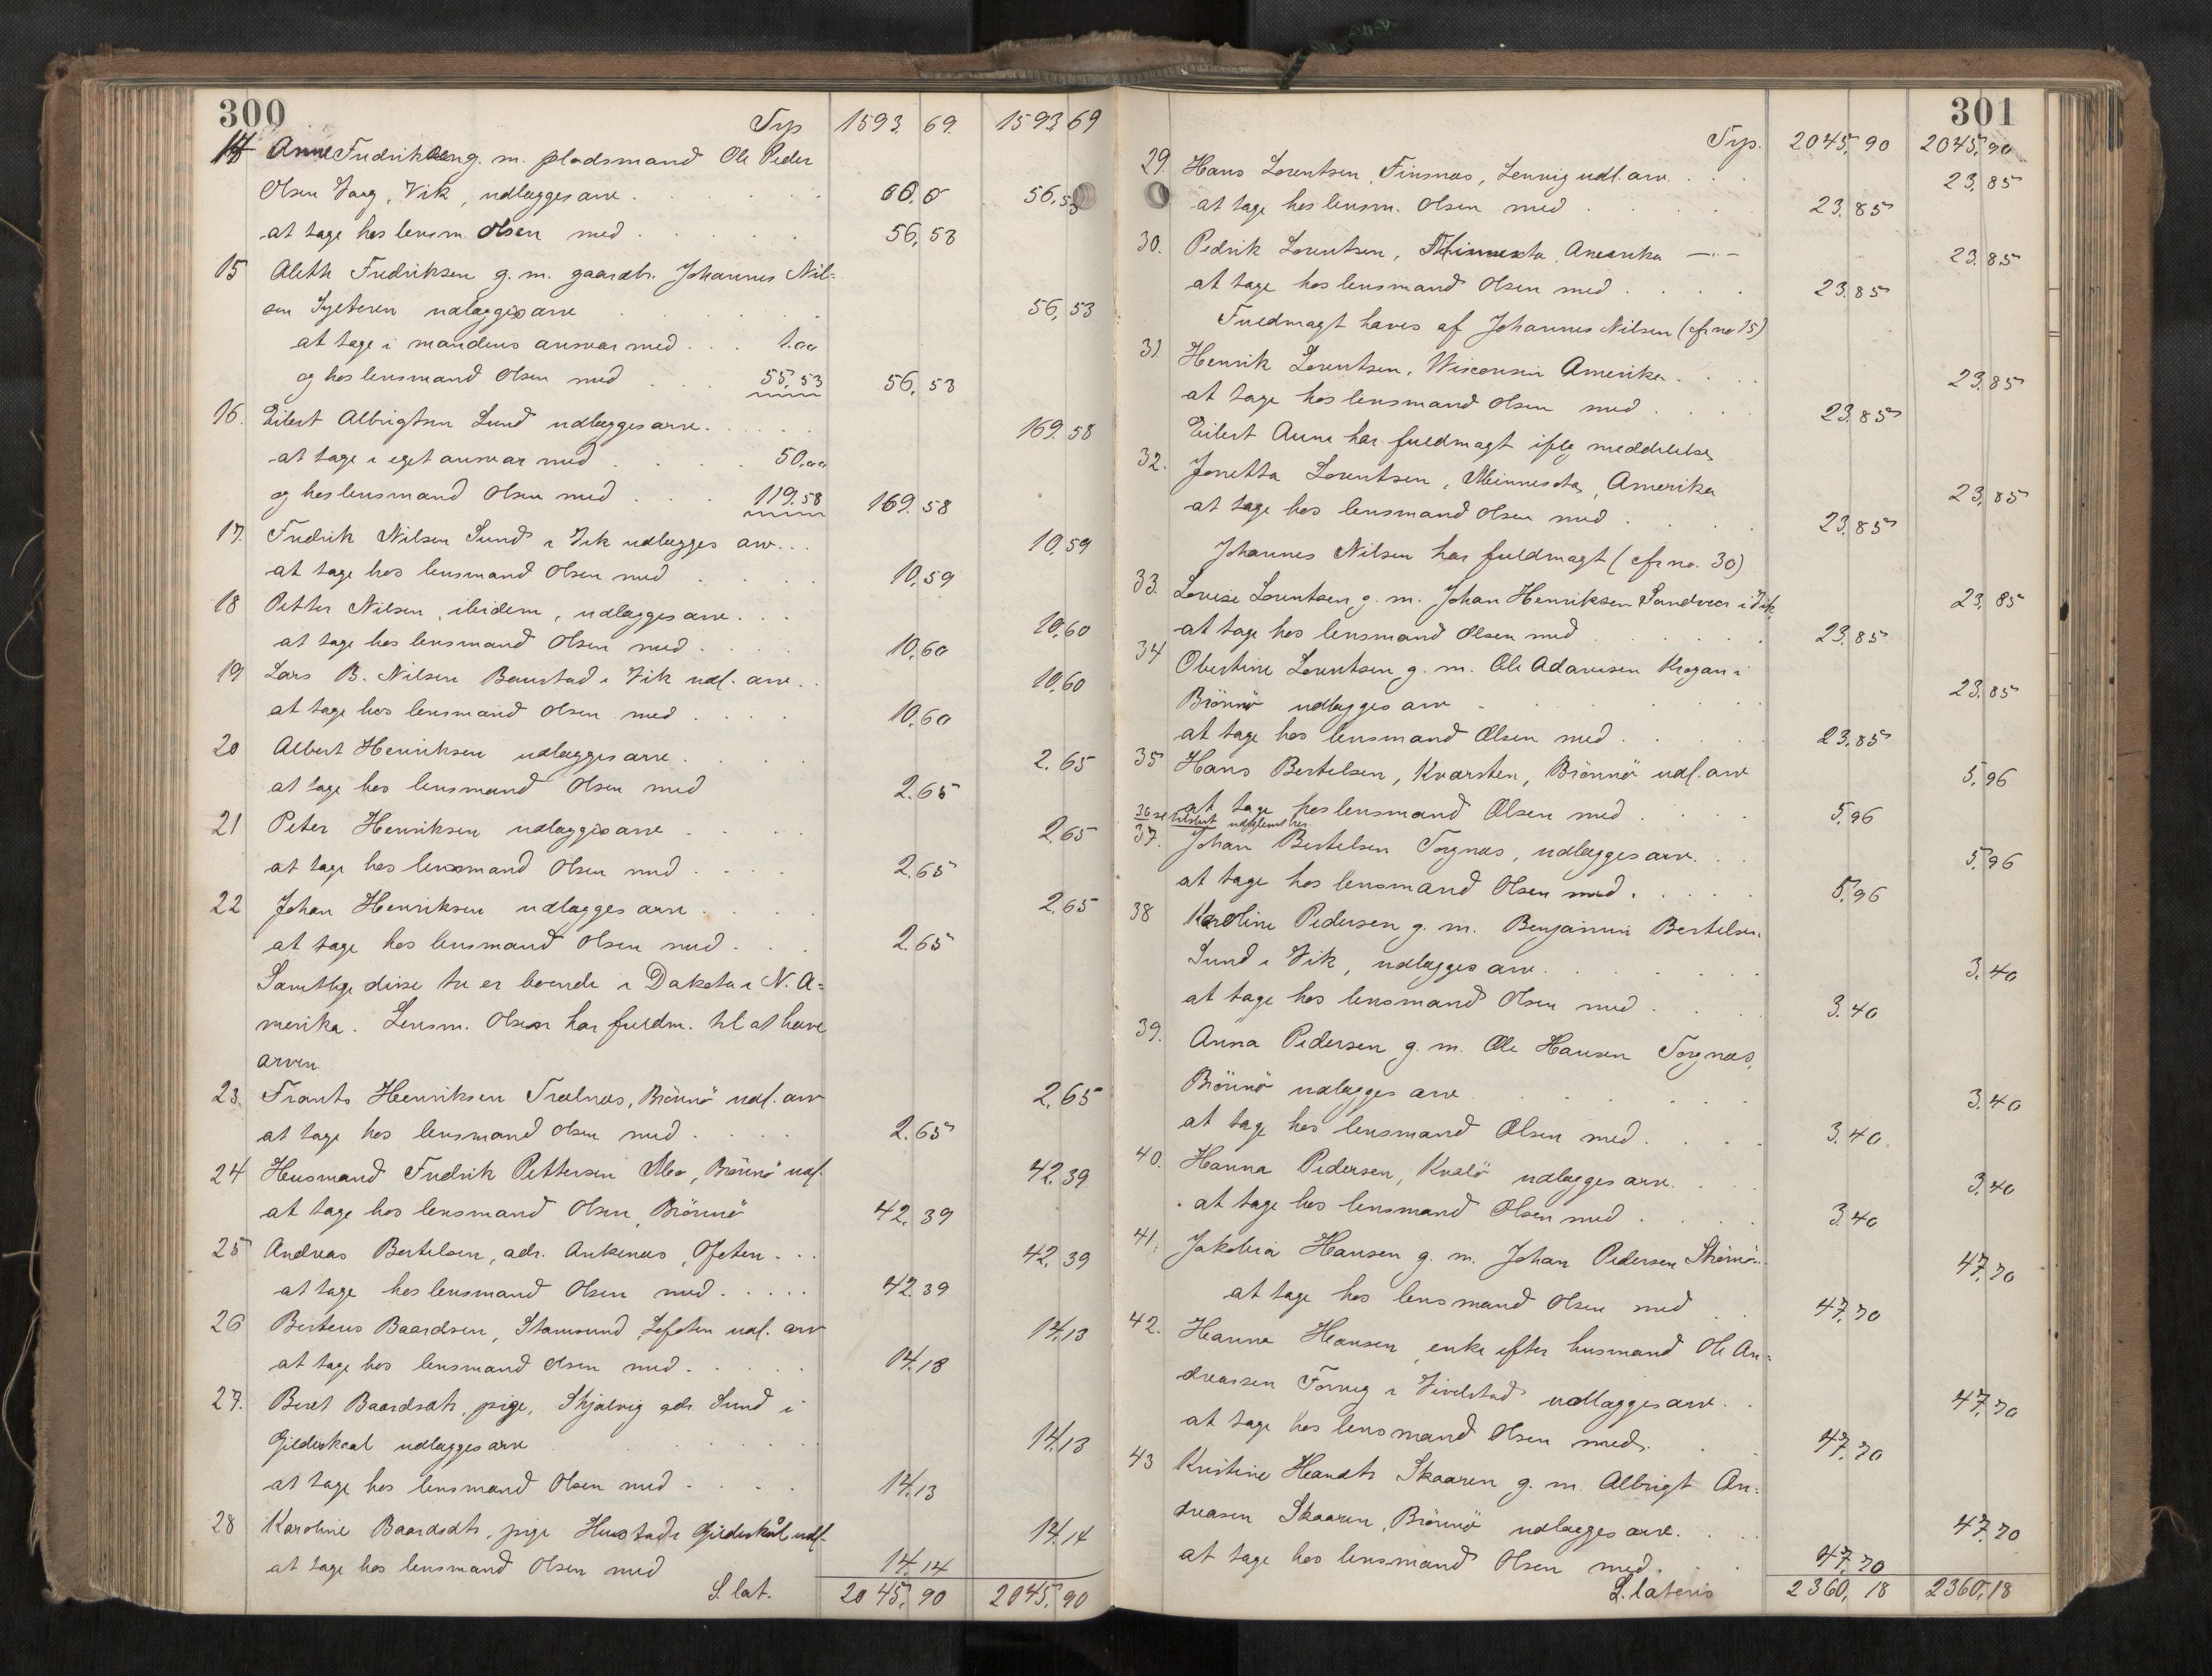 300
Trp 1593. 69. 1593 69
14 Anne Fredriksen g. m. pladsmand Ole Peder
Olsen Varg, Vik, udlægges arv . . . 56,53
at tage hos lensm. Olsen med . . . 56,53
15 Aleth Fredriksen g. m. gaardbr. Johannes Nil-
sen Sæteren udlægges arv . . . 56,53
at tage i mandens ansvar med . . . 1.00
og hos lensmand Olsen med . . . 55,53 56,53
16. Eilert Albrigtsen Sund udlægges arv . . . 169.58
at tage i eget ansvar med . . . 50,00
og hos lensmand Olsen med . . . 119.58 169.58
17. Fredrik Nilsen Sund i Vik udlægges arv . . . 10,59
at tage hos lensmand Olsen med . . . 10,59
18 Petter Nilsen, ibidem, udlægges arv . . . 10,60
at tage hos lensmand Olsen med . . . 10,60
19 Lars B. Nilsen Baustad i Vik udl. arv . . 10,60
at tage hos lensmand Olsen med . . . 10,60
20 Albert Henriksen udlægges arv . . . 2.65
at tage hos lensmand Olsen med 2.65
21 Peter Henriksen udlægges arv . . . 2,65
at tage hos lensmand Olsen med . . . 2.65
22 Johan Henriksen udlægges arv . . . 2.65
at tage hos lensmand Olsen med . . . 2.65
Samtlige disse tre er boende i Dakota i N. A-
merika. Lensm. Olsen har fuldm. til at hæve
arven
23. Frants Henriksen Trælnæs, Brönnö udl. arv 2.65
at tage hos lensmand Olsen med . . . 2.65
24 Husmand Fredrik Pettersen Mo, Brönnö udl. 42.39
at tage hos lensmand Olsen, Brönnö 42.39
25 Andreas Bertelsen, adr. Ankenes, Ofoten . . . 42,39
at tage hos lensmand Olsen med . . . 42.39
26 Berteus Baardsen, Stamsund Lofoten udl. arv 14.13
at tage hos lensmand Olsen med . . . 14.13
27. Beret Baardsdtr, pige, Skjælvig adr. Sund i
Gilderkaal udlægges arv . . . 14.13
at tage hos lensmand Olsen med . . . 14.13
28 Karoline Baardsdtr, pige Hustads Gilderskål udl. 14.14
at tage hos lensmand Olsen med 14.14
S. lat. 2045,90 2045,90
301
Trp. 2045,90 2045,90
29. Hans Lorentsen, Finsnæs, Lenvig udl. arv . . . 23,85
at tage hos lensm. Olsen med . . . 23.85
30. Pedrik Lorentsen, Minnesota Amerika —"— 23.85
at tage hos lensmand Olsen med . . . 23.85
Fuldmagt haves af Johannes Nilsen (cfr no 15)
31. Henrik Lorentsen, Wisconsin Amerika . . . 23.85
at tage hos lensmand Olsen med . . . 23.85
Eilert Aune har fuldmagt iflg meddelelse
32. Jonetta Lorentsen, Minnesota, Amerika 23,85
at tage hos lensmand Olsen med . . . 23.85
Johannes Nilsen har fuldmagt (cfr no. 30)
33. Lovise Lorentsen g. m. Johan Henriksen Sandvær i Vik 23,85
at tage hos lensmand Olsen med . . . 23.85
34 Obertine Lorentsen g. m. Ole Adamsen Krogan i
Brönnö udlægges arv . . . 23.85
at tage hos lensmand Olsen med . . . 23.85
35 Hans Bertelsen, Kvarsten, Brönnö udl. arv 5,96
at tage hos lensmand Olsen med . . . 5.96
36 se
37. Johan Bertelsen Torgnæs, udlægges arv . . . 5,96
at tage hos lensmand Olsen med . . . 5.96
38 Karoline Pedersen g. m. Benjamin Bertelsen
Sund i Vik, udlægges arv . . . 3.40
at tage hos lensmand Olsen med . . . 3.40
39. Anna Pedersen g. m. Ole Hansen Torgnæs,
Brönnö udlægges arv . . . 3.40
at tage hos lensmand Olsen med . . . 3.40
40. Hanna Pedersen, Kvalö udlægges arv . . . 3.40
at tage hos lensmand Olsen med . . . 3.40
41. Jakobia Hansen g. m. Johan Pedersen 47.70
at tage hos lensmand Olsen med 47.70
42. Hanna Hansen, enke efter husmand Ole An-
dreassen Forvig i Vivelstad udlægges arv . . 47.70
at tage hos lensmand Olsen med . . . 47.70
43 Kristine Hansdtr Skaaren g. m. Albrigt An-
dreasen Skaaren, Brönnö udlægges arv . . . 47.70
at tage hos lensmand Olsen med . . . 47.70
S. lateris 2360,18 2360,18